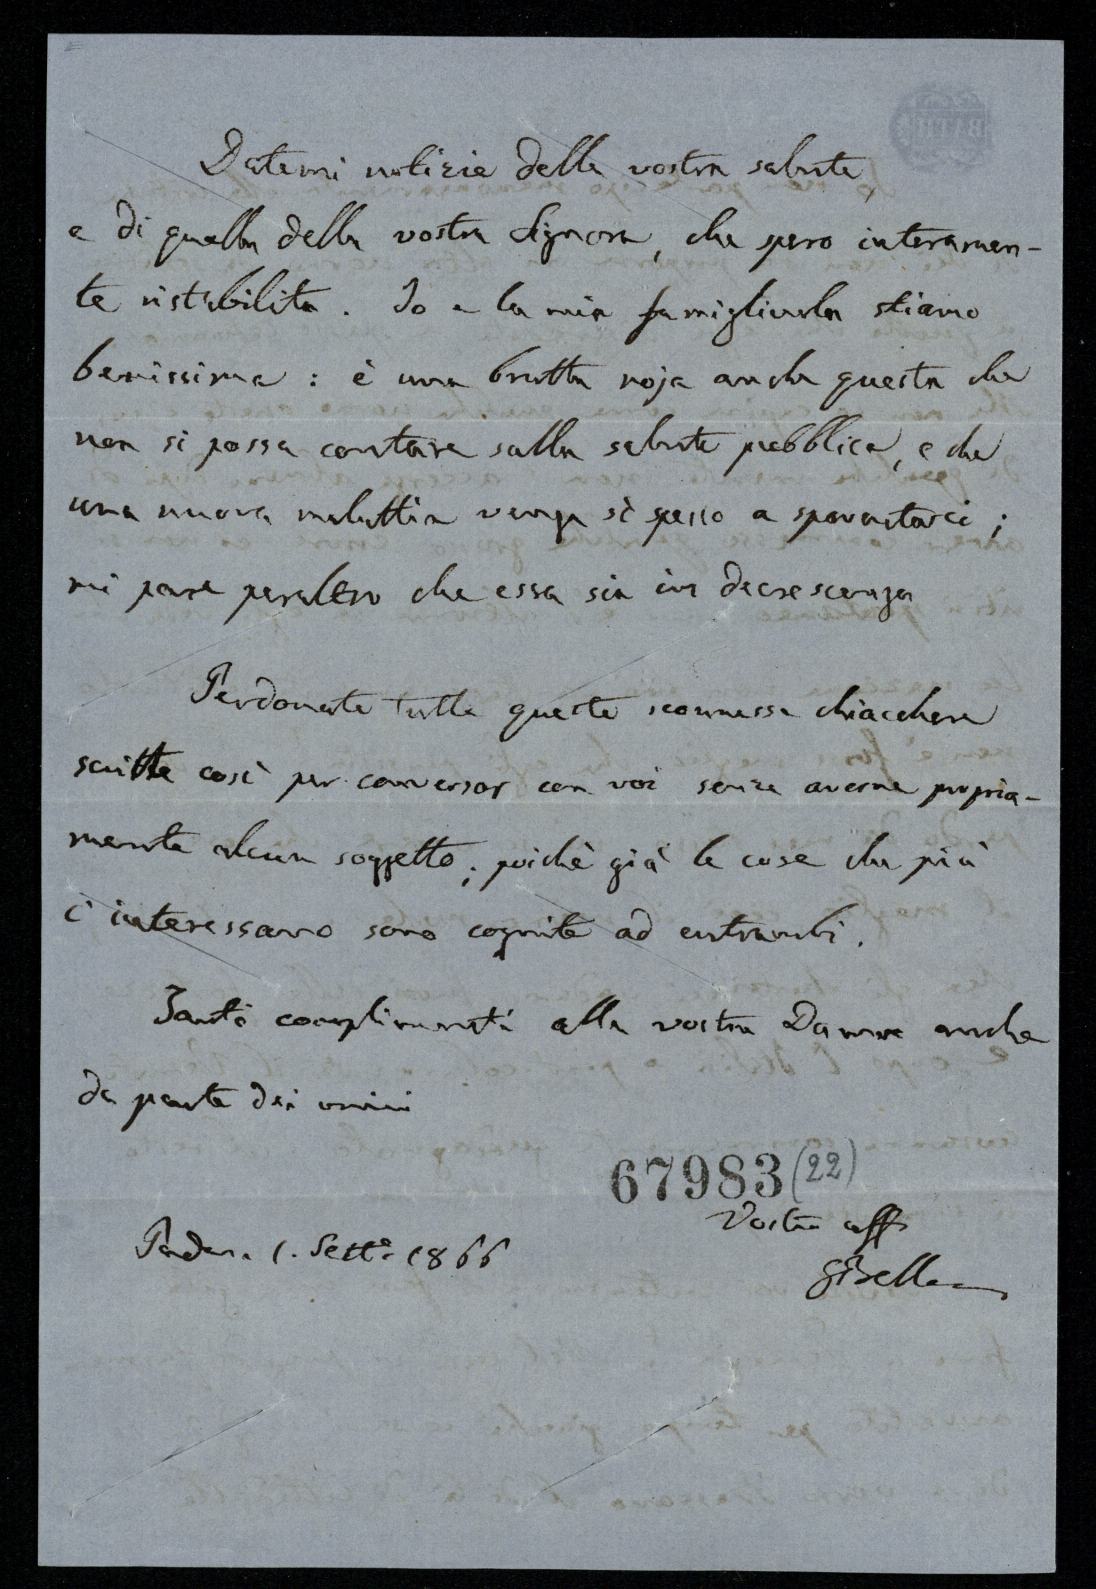 Datemi notizie della vostra salute,
e di quella della vostra Signora, che spero interamen-
te ristabilita. Io e la mia famigliuola stiamo
benissimo: è una brutta noja anche questa che
non si possa contare sulla salute pubblica, e che
una nuova malattia venga sì spesso a spaventarci;
mi pare peraltro che essa sia in decrescenza
Perdonate tutte queste sconnesse chiacchere
scritte così per conversar con voi senza averne propria-
mente alcun soggetto; poichè già le cose che più
c'interessano sono cognite ad entrambi.
Tanti complimenti alla vostra Dama anche
da parte dei miei
67983 (22)
Vostro aff
Padova 1. Sette 1866